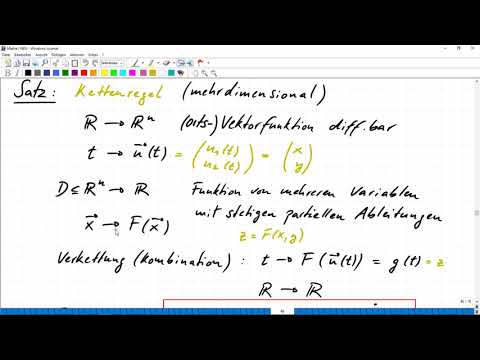 Satz: Kettenregel (mehrdimensional)
ℝ → ℝⁿ (Orts-)Vektorfunktion diff.bar
t → u⃗(t) = (u₁(t) u₂(t)) = (x y)
D ⊆ ℝⁿ → ℝ Funktion von mehreren Variablen
mit stetigen partiellen Ableitungen
x⃗ → F(x⃗)
z = F(x,y)
Verkettung (Kombination): t → F(u⃗(t)) = g(t) = z
ℝ → ℝ